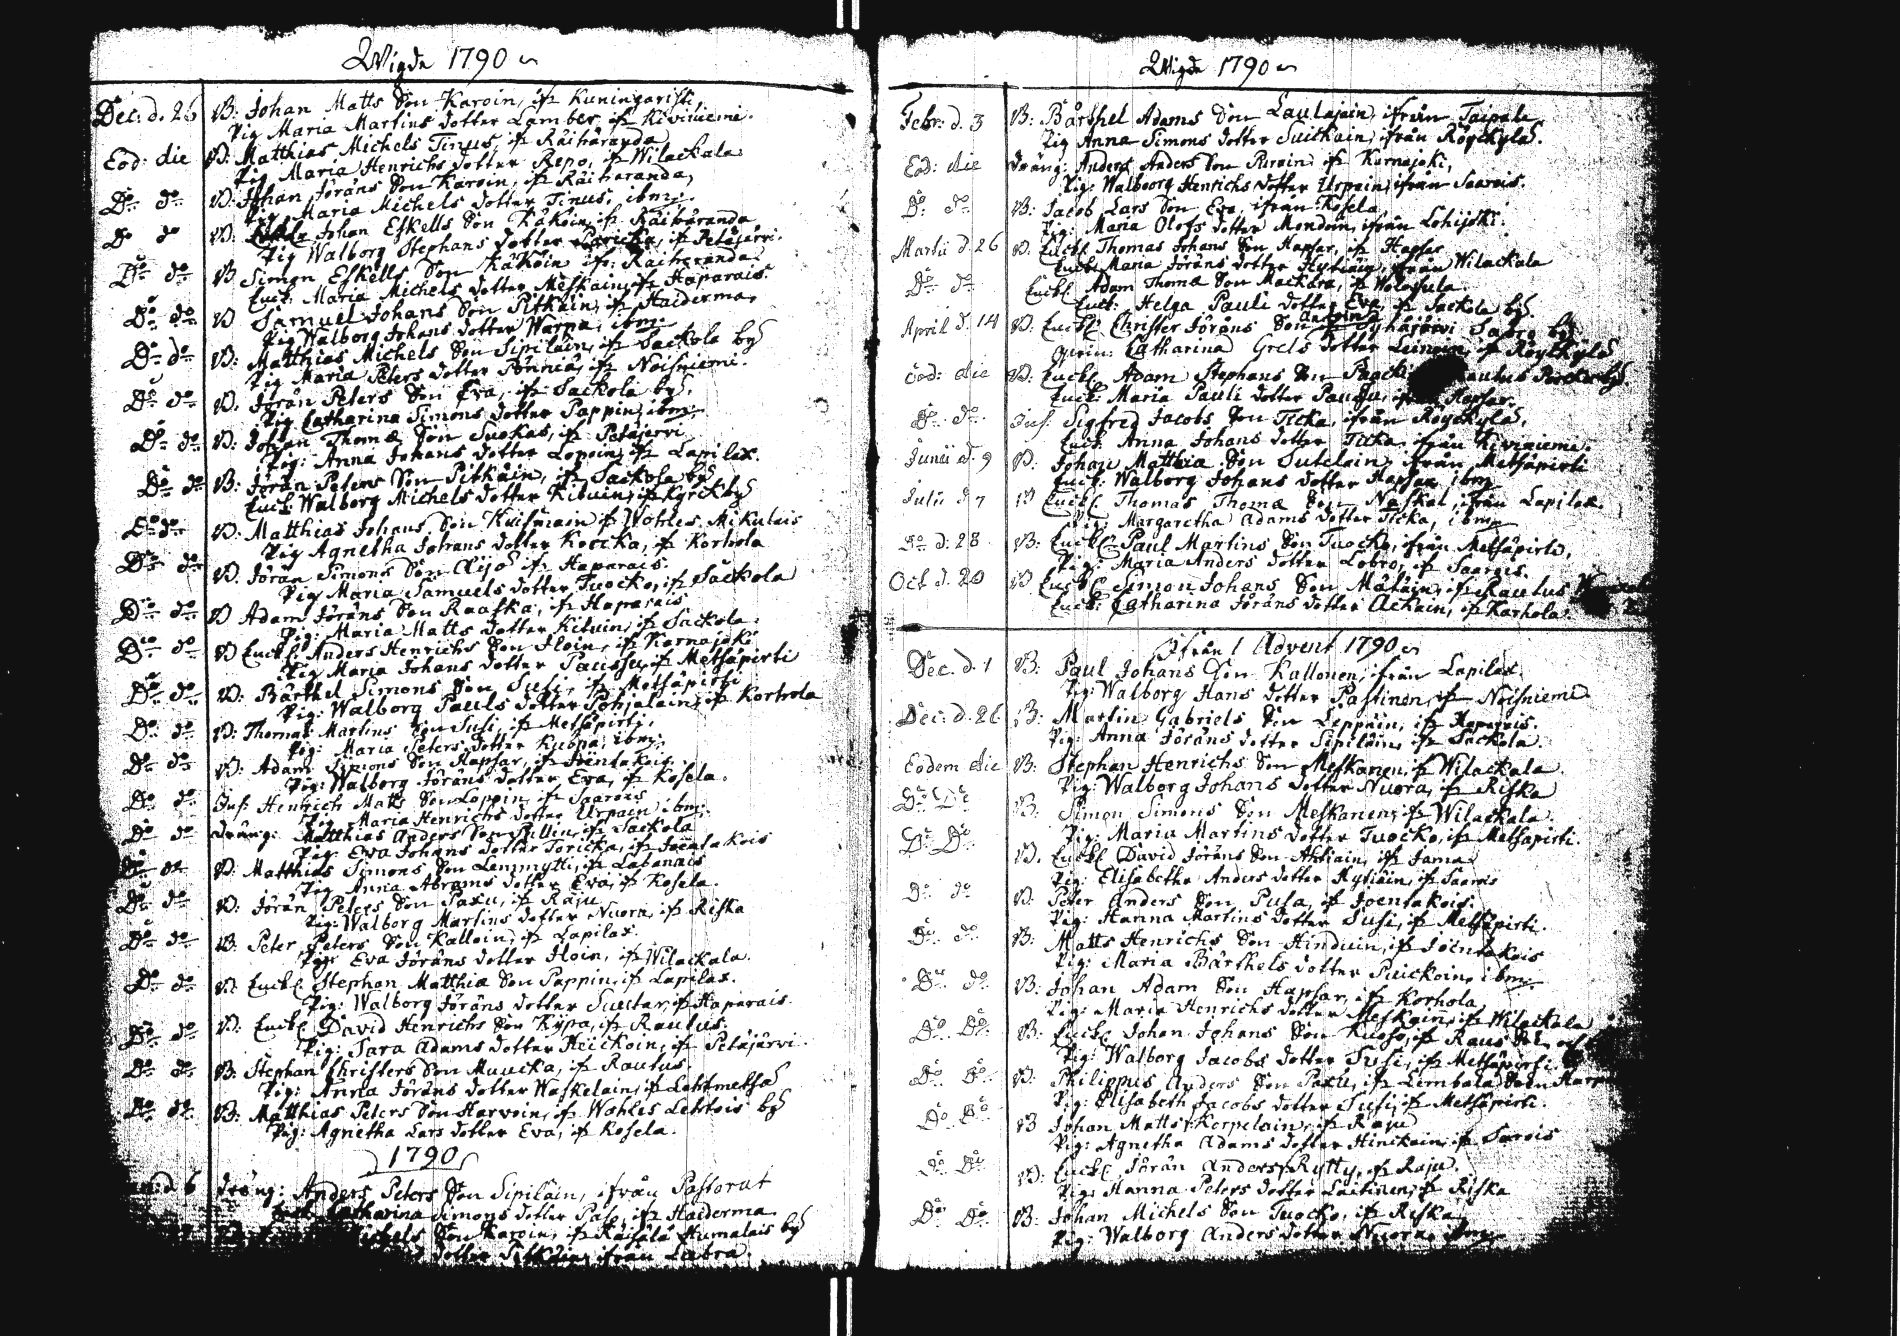 Wigde 1790
Dec: d. 26 B: Johan Matts Son Karoin, if Kuningaristi,
Pig Maria Martins dotter Lamber, if Kiviniemi.
Eod: die B: Matthias Michels Tinus, if Räihäranda
Pig Maria Henrichs dotter Repo, if Wilackala
Do do B: Johan Jöräns Son Karoin, if Räiharanda,
Pig Maria Michels dotter Tinus, ibm:
Do do B: Johan Eskells Son Käköin, if Räihäranda
Pig Walborg Stephans dotter, if Petäjärvi.
Do do B Simon Eskells Son Käköin if: Raiharanda
Enck: Maria Michels dotter Meskain, if Haparais.
Do do B Samuel Johans Son Pitkäin, if Haiderma,
Pig Walborg Johans dotter Warpa, ibm:
Do do B: Matthias Michels Son Sipiläin, if Sackola by
Pig Maria Peters dotter Pönniä, if Noisniemi.
Do do B: Jörän Peters Son Eva, if Sackola by.
Pig Catharina Simons dotter Pappin, ibm:
Do do B: Johan Thomæ Son Suokas, if Petäjervi
Pig: Anna Johans dotter Lopoin, if Lapilax.
Do do B: Jörän Peters Son Pitkäin, if Sackola by
Enck Walborg Michels dotter Kiluin, if Kyrckby
Do do B: Matthias Johans Son Kuismain if Wohles Mikulais
Pig Agnetha Johans dotter Koocka, if Korhola
Do do B: Jörän Simons Son Äijö if Haparais.
Pig Maria Samuels dotter Tuocko, if Sackola
Do do B Adam Jöräns Son Raaska, if Haparais
Pig: Maria Matts dotter Kiluin, if Sackola.
Do do B Enckl. Anders Henrichs Son Iloin, if Karnajoki
Pig Maria Johans dotter Paussu, if Metsäpirti
Do do B: Bärthel Simons Son Susi, if Metsäpirti
Pig: Walborg Pauls dotter Pohjalain, if Korhola
Do do B: Thomas Martins Son Susi, if Metsäpirti,
Pig: Maria Peters dotter Kuopa, ibm:
Do do B: Adam Simons Son Hapsar, if Joentakois.
Pig: Walborg Jöräns dotter Eva, if Kosela.
Do do Inf: Henrich Matts Son Loppin, if Saarois
Pig Maria Henrichs dotter Urpain ibm:
Do do dräng: Matthias Anders Son Pullin, if Sackola
Pig: Eva Johans dotter Toricka, if Joentakois
Do do B: Matthias Simons Son Lemmytti, if Labanais
Pig Anna Abrams dotter Eva, if Kosela.
Do do B: Jörän Peters Son Paxu, if Raju
Pig: Walborg Martins dotter Nuora, if Riska
Do do B: Peter Peters Son Kalloin, if Lapilax.
Pig: Eva Jöräns dotter Iloin, if Wilackala.
Do do B Enckl. Stephan Matthiæ Son Pappin, if Lapilax.
Pig: Walborg Jöräns dotter Suutar, if Haparais.
Do do B: Enckl David Henrichs Son Kypa, if Rautus.
Pig: Sara Adams dotter Heickoin, if Petäjärvi.
Do do B: Stephan Christers Son Muucka, if Rautus.
Pig: Anna Jöräns dotter Waskelain, if Lehtmetsä
Do do B: Matthias Peters Son Harvoin, if Wohles Lehtois by
Pig: Agnetha Lars dotter Eva, if Kosela.
1790
d 6 dräng: Anders Peters Son Sipiläin, ifrån Pastorat
Catharina Simons dotter, if Haiderma
Michels Son Karoin, if Räisälä Humalais by
dotter Pitkäin, ifrån Liabra
Wigde 1790
Febr: d. 3 B: Bärthel Adams Son Laulajain, ifrån Taipale
Pig Anna Simons dotter Suickain, ifrån Röyckylä.
Eod: die dräng: Anders Anders Son Puroin if Karnajoki,
Pig: Walborg Henrichs dotter Urpain, ifrån Saarois.
Do do B: Jacob Lars Son Eva, ifrån Kosela
Pig: Maria Olofs dotter Mondoin, ifrån Lohijoki.
Martii d. 26 B: Enckl Thomas Johans Son Hapsar, if Hapsar
Enck: Maria Jöräns dotter Hytiäin, ifrån Wilackala
Do do Enckl. Adam Thomæ Son Mackara, if Wolojula.
Enck: Helga Pauli dotter Eva, if Sackola by.
April d. 14 B: Enckl Christer Jöräns Son if Pyhäjärvi Sabro by
Catharina Grels dotter Leinoin, if Röyckylä
Eod: die B: Enckl Adam Stephans Son
Enck: Maria Pauli dotter Paussu, ifrån Hapsar.
Do do Inf: Sigfred Jacobs Son Ticka, ifrån Röyckylä.
Enck: Anna Johans dotter Ticka, ifrån Kiviniemi.
Junii d. 9 B: Johan Matthiæ Son Sutelain, ifrån Metsäpirti
Enck: Walborg Johans dotter Hapsar ibm
Julii d 7 B Enckl. Thomas Thomæ Son Naskal, ifrån Lapilax.
Pig: Margaretha Adams dotter Ticka, ibm
Do d: 28 B: Enckl Paul Martins Son Tuocko, ifrån Metsäpirti,
Pig: Maria Anders dotter Lobro, if Saarois.
Oct d. 20 B Enckl Simon Johans Son Mätäin, if Rautus
Enck: Catharina Jöräns dotter Ackain, if Karhola.
Ifrån 1 Advent 1790
Dec. d. 1 B: Paul Johans Son Kallonen, ifrån Lapilax
Pig: Walborg Hans dotter Pastinen, if Noisniemi
Dec: d. 26 B: Martin Gabriels Son Leppäin, if Haparais.
Pig: Anna Jöräns dotter Sipiläin, if Sackola.
Eodem die B: Stephan Henrichs Son Meskanen, if Wilackala.
Pig: Walborg Johans dotter Nuora, if Riska
Do Do B: Simon Simons Son Meskanen, if Wilackala.
Pig: Maria Martins dotter Tuocko, if Metsäpirti.
Do Do B. Enckl David Jöräns Son Ahtiain, if Jama
Pig: Elisabetha Anders dotter Hytiäin, if Saarois
Do do B: Peter Anders Son Pusa, if Joentakois.
Pig: Hanna Martins dotter Susi, if Metsäpirti.
Do do B: Matts Henrichs Son Hinduin, if Joentakois
Pig: Maria Bärthels dotter Puickoin, ibm:
Do do B: Johan Adam Son Hapsar, if Korhola
Pig: Maria Henrichs dotter Meskain, if Wilackala
Do Do B: Enckl Johan Johans Son Kuosa, if
Pig: Walborg Jacobs dotter Susi, if Metsäpirti
Do Do B: Philippus Anders Son Paxu, if Lembala
Pig: Elisabeth Jacobs dotter Susi, if Metsäpirti.
Do Do B Johan Matts: Korpelain, if Raju
Pig: Agnetha Adams dotter Hinckain, if Sarois
Do Do B: Enckl Jörän Anders: Rytty, if Raju.
Pig: Hanna Peters dotter Laitinen, if Riska
Do Do B: Johan Michels Son Tuocko, if Riska.
Pig: Walborg Anders dotter Nuora, ibm